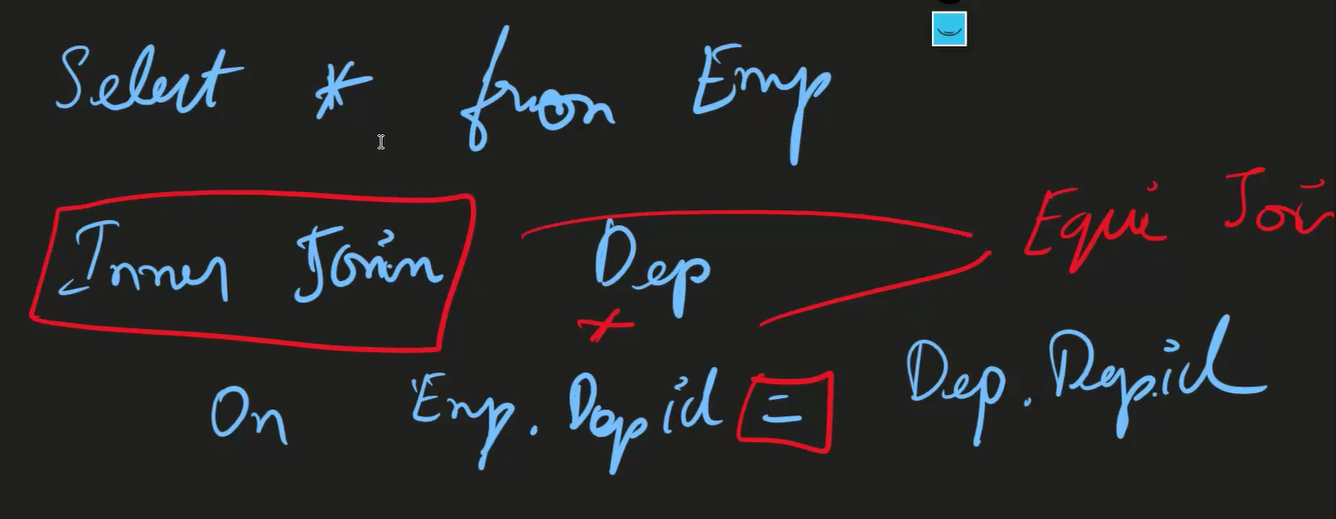 Select * from Emp
Inner Join Dep Equi Join
On Emp.Depid = Dep.Depid